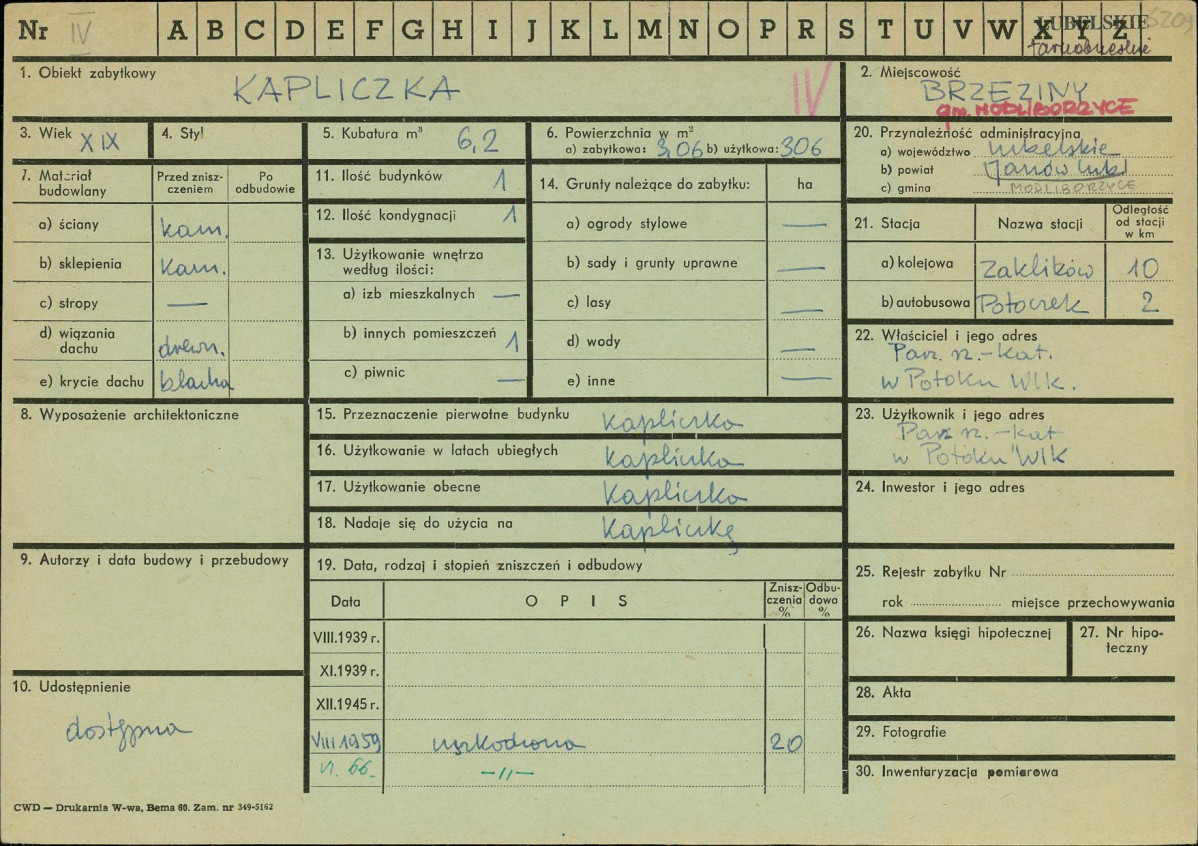 Nr IV A B C D E F G H I J K L M N O P R S T U V W X Y Z LUBELSKIE 5209
tarnobrzeskie
1. Obiekt zabytkowy
KAPLICZKA IV
2. Miejscowość
BRZEZINY
gm. MODLIBORZYCE
3. Wiek XIX
4. Styl
5. Kubatura m³ 6,2
6. Powierzchnia w m²
a) zabytkowa: 3,06 b) użytkowa: 306
20. Przynależność administracyjna
a) województwo lubelskie
b) powiat Janów lub.
c) gmina MODLIBORZYCE
7. Materiał budowlany
Przed zniszczeniem
Po odbudowie
a) ściany kam.
b) sklepienia kam.
c) stropy —
d) wiązania dachu drewn.
e) krycie dachu blacha
11. Ilość budynków 1
12. Ilość kondygnacji 1
13. Użytkowanie wnętrza według ilości:
a) izb mieszkalnych —
b) innych pomieszczeń 1
c) piwnic —
14. Grunty należące do zabytku: ha
a) ogrody stylowe —
b) sady i grunty uprawne —
c) lasy —
d) wody —
e) inne —
21. Stacja Nazwa stacji Odległość od stacji w km
a) kolejowa Zaklików 10
b) autobusowa Potoczek 2
22. Właściciel i jego adres
Par. rz.-kat.
w Potoku Wlk.
8. Wyposażenie architektoniczne
15. Przeznaczenie pierwotne budynku kapliczka
16. Użytkowanie w latach ubiegłych kapliczka
17. Użytkowanie obecne kapliczka
18. Nadaje się do użycia na kapliczkę
23. Użytkownik i jego adres
Par. rz.-kat
w Potoku Wlk
24. Inwestor i jego adres
9. Autorzy i data budowy i przebudowy
19. Data, rodzaj i stopień zniszczeń i odbudowy
Data OPIS Zniszczenia % Odbudowa %
VIII.1939 r.
XI.1939 r.
XII.1945 r.
VIII 1959 uszkodzona 20
VI. 66. —//—
25. Rejestr zabytku Nr
rok miejsce przechowywania
26. Nazwa księgi hipotecznej
27. Nr hipoteczny
10. Udostępnienie
dostępna
28. Akta
29. Fotografie
30. Inwentaryzacja pomiarowa
CWD — Drukarnia W-wa, Bema 60. Zam. nr 349-5162